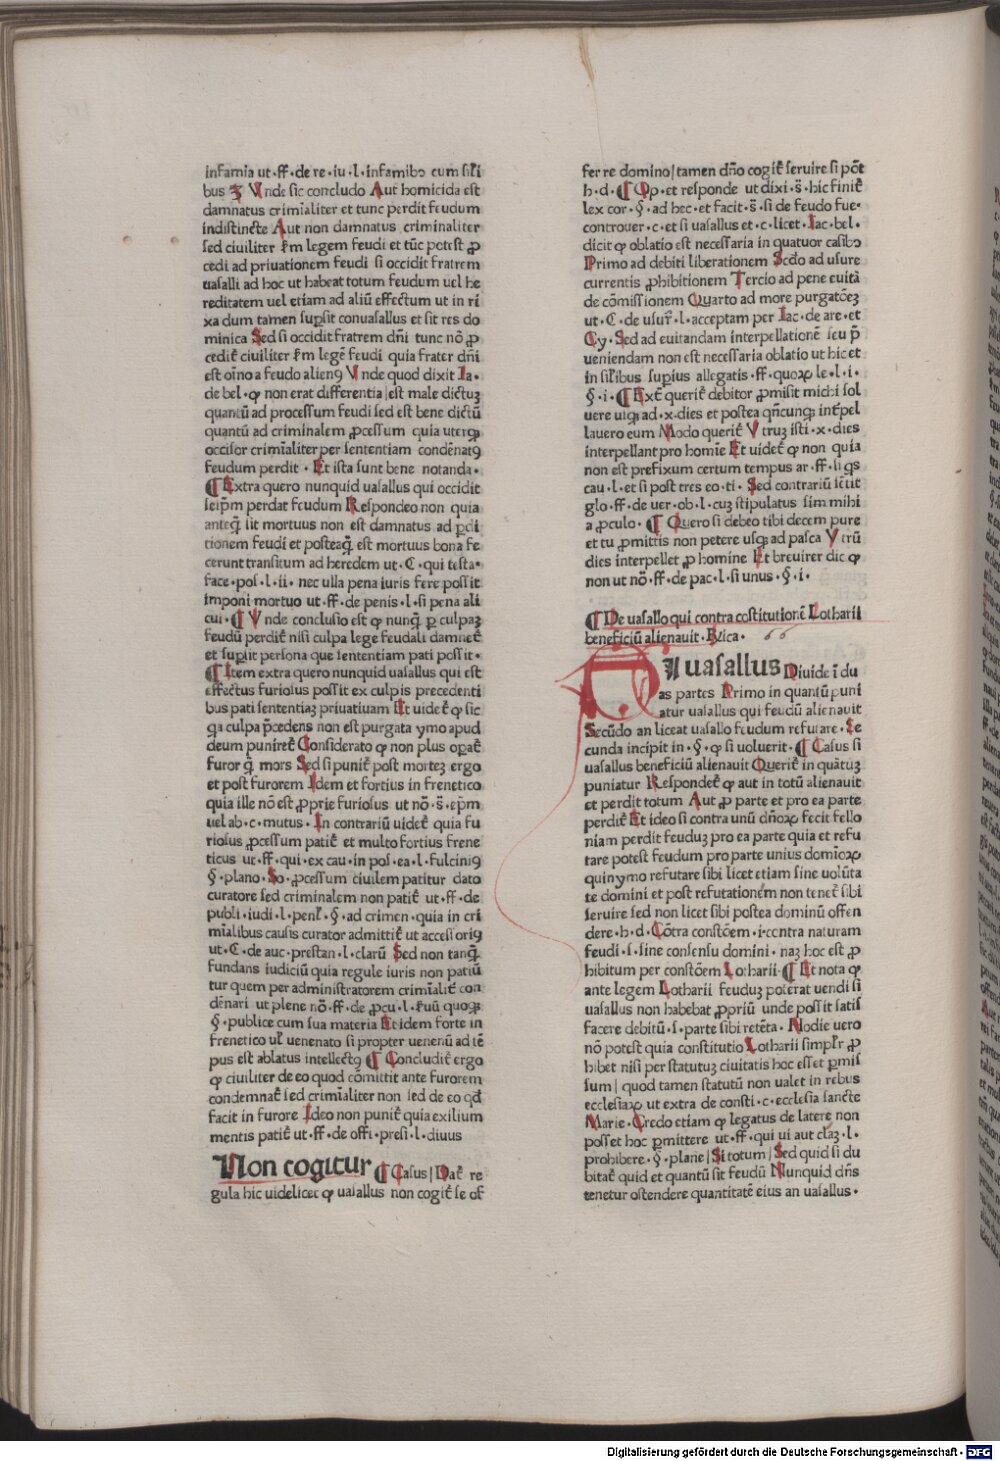 infamia ut·ff·de re·iu·l·infamibꝫ cum sil̄i
bus ⁊ Vnde sic concludo Aut homicida est
damnatus crimīaliter et tunc perdit feudum
indistincte Aut non damnatus criminaliter
sed ciuiliter ẜm legem feudi et tūc potest ꝓ
cedi ad priuationem feudi si occidit fratrem
uasalli ad hoc ut habeat totum feudum uel he
reditatem uel etiam ad aliū effectum ut in ri
xa dum tamen suꝑsit conuasallus et sit res do
minica Sed si occidit fratrem dn̄i tunc nō ꝓ
cedit̄ ciuiliter ẜm legē feudi quia frater dn̄i
est oīno a feudo alienꝰ Vnde quod dixit Ia·
de bel·ꝙ non erat differentia|est male dictuꝫ
quantū ad processum feudi sed est bene dictū
quantū ad criminalem ꝓcessum quia uterqꝫ
occisor crimīaliter per sententiam condēnatꝰ
feudum perdit·Et ista sunt bene notanda·
¶Extra quero nunquid uasallus qui occidit
seipm̄ perdat feudum Respondeo non quia
anteqꝫ sit mortuus non est damnatus ad ꝑdi
tionem feudi et posteaqꝫ est mortuus bona fe
cerunt transitum ad heredem ut·C·qui testa·
face·pos·l·ii·nec ulla pena iuris fere possit
imponi mortuo ut·ff·de penis·l·si pena ali
cui·¶Vnde conclusio est ꝙ nunqꝫ ꝑ culpaꝫ
feudū perdit̄ nisi culpa lege feudali damnet̄
et suꝑsit persona que sententiam pati possit·
¶Item extra quero nunquid uasallus qui est
effectus furiosus possit ex culpis precedenti
bus pati sententiaꝫ priuatiuam Et uidet̄ ꝙ sic
qꝫ culpa p̄cedens non est purgata ymo apud
deum puniret̄ Considerato ꝙ non plus oꝑat̄
furor qꝫ mors Sed si punit̄ post morteꝫ ergo
et post furorem Idem et fortius in frenetico
quia ille nō est ꝓprie furiosus ut nō·s̄·epm̄
uel ab·c·mutus·In contrariū uidet̄ quia fu
riosus ꝓcessum patit̄ et multo fortius frene
ticus ut·ff·qui·ex cau·in pos·ea·l·fulciniꝰ
§·plano·So·ꝓcessum ciuilem patitur dato
curatore sed criminalem non patit̄ ut·ff·de
publi·iudi·l·penl̄·§·ad crimen·quia in cri
mīalibus causis curator admittit̄ ut accesoriꝰ
ut·C·de auc·prestan·l·clarū Sed non tanqꝫ
fundans iudiciū quia regule iuris non patiū
tur quem per administratorem crimīalit̄ con
dēnari ut plene nō·ff·de ꝓcu·l·ẜuū quoqꝫ
§·publice cum sua materia Et idem forte in
frenetico ul̄ uenenato si propter uenenū ad tē
pus est ablatus intellectꝰ ¶ Concludit̄ ergo
ꝙ ciuiliter de eo quod cōmittit ante furorem
condemnat̄ sed crimīaliter non sed de eo qđ
facit in furore Ideo non punit̄ quia exilium
mentis patit̄ ut·ff·de offi·presi·l·diuus
Non cogitur ¶Casus|Dat̄ re
gula hic uidelicet ꝙ uasallus non cogit̄ se of
fer re domino|tamen dn̄o cogit̄ seruire si pōt
h·d·¶Op·et responde ut dixi·s̄·hic finit̄
lex cor·§·ad hec·et facit·s̄·si de feudo fue·
controuer·c·et si uasallus et·c·licet·Iac·bel·
dicit ꝙ oblatio est necessaria in quatuor casibꝫ
Primo ad debiti liberationem Scd̄o ad usure
currentis ꝓhibitionem Tercio ad pene euitā
de cōmissionem Quarto ad more purgatōeꝫ
ut·C·de usur̄·l·acceptam per Iac·de are·et
Cy·Sed ad euitandam interpellationē seu p̄
ueniendam non est necessaria oblatio ut hic et
in sil̄ibus suꝑius allegatis·ff·quoꝝ le·l·i·
§·i·¶Ext̄ querit̄ debitor ꝓmisit michi sol
uere usqꝫ ad·x·dies et postea qn̄cunqꝫ int̄pel
lauero eum Modo querit̄ Vtruꝫ isti·x·dies
interpellant pro homīe Et uidet̄ ꝙ non quia
non est prefixum certum tempus ar·ff·si qs
cau·l·et si post tres eo·ti·Sed contrariū sētit
glo·ff·de uer·ob·l·cuꝫ stipulatus sim mihi
a ꝓculo·¶Quero si debeo tibi decem pure
et tu ꝓmittis non petere usqꝫ ad pasca Vtrū
dies interpellet ꝓ homine Et breuirer dic ꝙ
non ut nō·ff·de pac·l·si unus·§·i·
¶De uasallo qui contra cōstitutionē Lotharii
beneficiū alienauit·Rꝫica· 66
SI uasallus Diuide ī du
as partes Primo in quantū puni
atur uasallus qui feudū alienauit
Secūdo an liceat uasallo feudum refutare·Se
cunda incipit in·§·ꝙ si uoluerit·¶Casus si
uasallus beneficiū alienauit Querit̄ in quātuꝫ
puniatur Respondet̄ ꝙ aut in totū alienauit
et perdit totum Aut ꝓ parte et pro ea parte
perdit̄ Et ideo si contra unū dn̄oꝝ fecit fello
niam perdit feuduꝫ pro ea parte quia et refu
tare potest feudum pro parte unius domīcoꝝ
quinymo refutare sibi licet etiam sine uolūta
te domini et post refutationem non tenet̄ sibi
seruire sed non licet sibi postea dominū offen
dere·h·d·Cōtra constōem·i·contra naturam
feudi·s·sine consensu domini·naꝫ hoc est ꝓ
hibitum per constōem Lotharii·¶Et nota ꝙ
ante legem Lotharii feuduꝫ poterat uendi si
uasallus non habebat ꝓpriū unde possit satis
facere debitū·s·parte sibi retēta·Hodie uero
nō potest quia constitutio Lotharii simpl̄r ꝓ
hibet nisi per statutuꝫ ciuitatis hoc esset ꝑmis
sum|quod tamen statutū non ualet in rebus
ecclesiaꝝ ut extra de consti·c·ecclesia sancte
Marie·Credo etiam ꝙ legatus de latere non
posset hoc ꝑmittere ut·ff·qui ui aut claꝫ·l·
prohibere·§·plane|Si totum|Sed quid si du
bitat̄ quid et quantū sit feudū Nunquid dn̄s
tenetur ostendere quantitatē eius an uasallus·
Digitalisierung gefördert durch die Deutsche Forschungsgemeinschaft - DFG